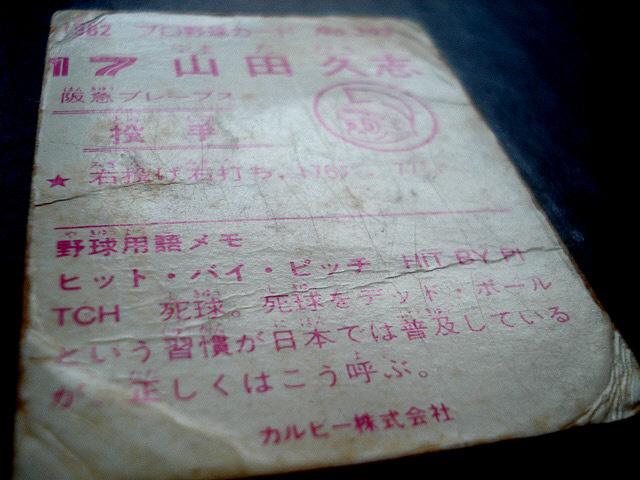 1982 プロ野球カード No.
17 山田久志
阪急ブレーブス
投手
★ 右投げ右打ち、176
野球用語メモ
ヒット・バイ・ピッチ HIT BY PI
TCH 死球。死球をデッド・ボール
という習慣が日本では普及している
が、正しくはこう呼ぶ。
カルビー株式会社